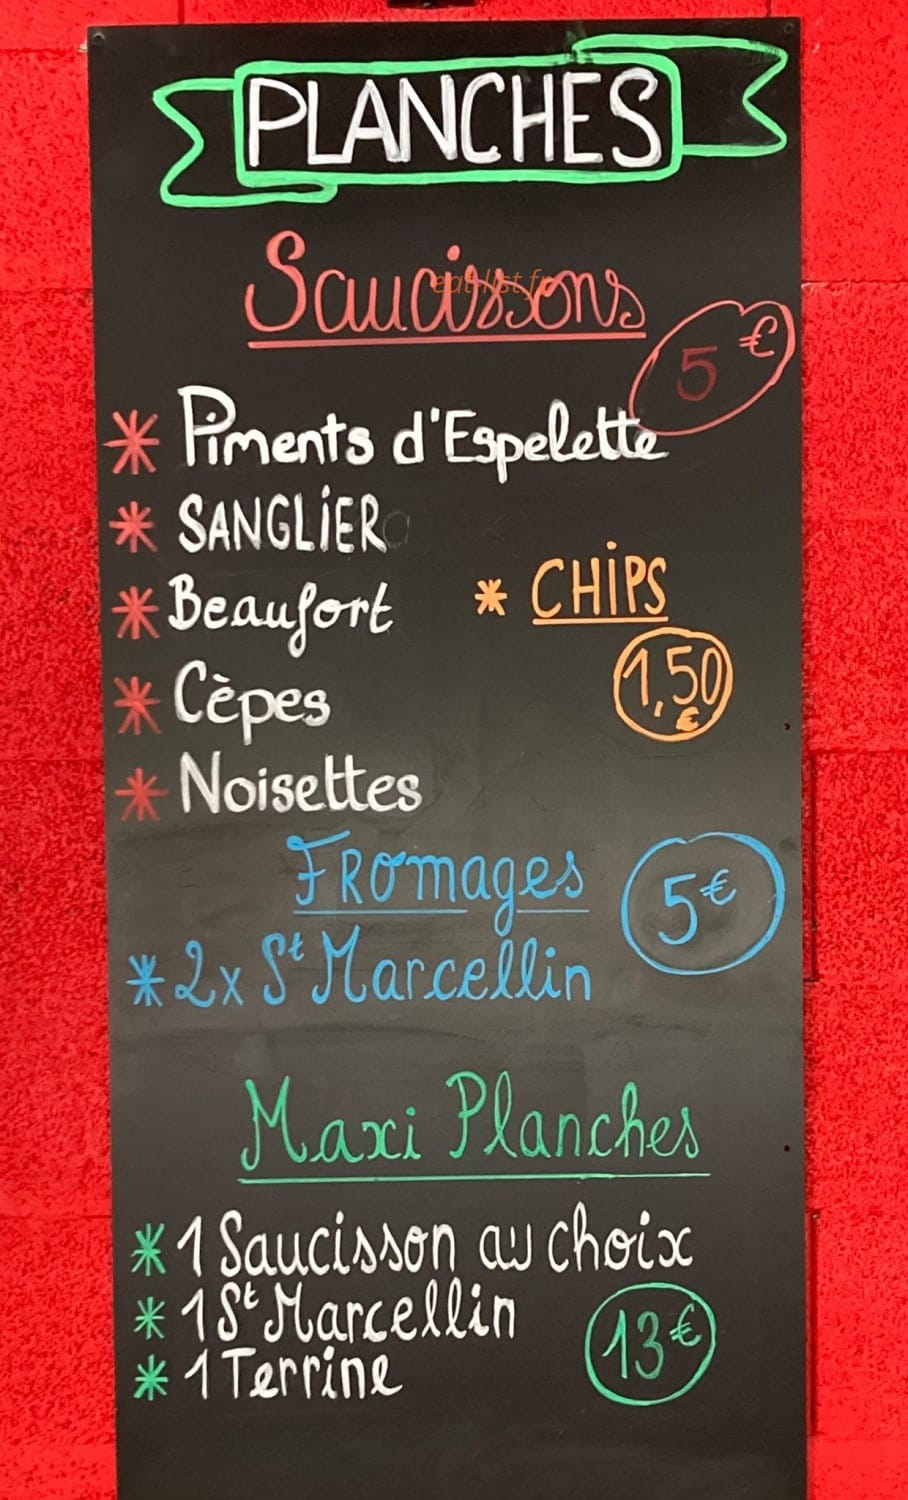 PLANCHES
Saucissons
eat-list.fr
5 €
* Piments d'Espelette
* SANGLIER
* Beaufort
* CHIPS
* Cèpes
1,50 €
* Noisettes
Fromages
5€
*2x St Marcellin
Maxi Planches
* 1 Saucisson au choix
* 1 St Marcellin
* 1 Terrine
13€